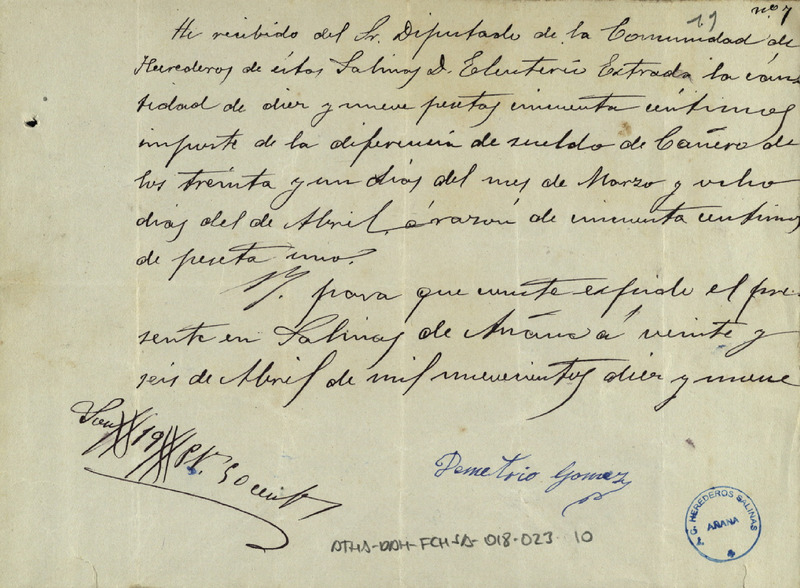 19 nº 7
He recibido del Sr. Diputado de la Comunidad de
Herederos de éstas Salinas D. Eleuterio Extrada la cán-
tidad de diez y nueve pesetas cincuenta céntimos
importe de la diferencia de sueldo de Cañero de
los treinta y un dias del mes de Marzo y ocho
dias del de Abril, á razón de cincuenta centimos
de peseta uno.
Y. para que conste expido el pre-
sente en Salinas de Añana á veinte y
seis de Abril de mil nuevecientos diez y nueve
Son 19 Pts. 50 cents
Demetrio Gomez
C. G. HEREDEROS SALINAS
AÑANA
ATHA-DAH-FCHSA-018-023 10